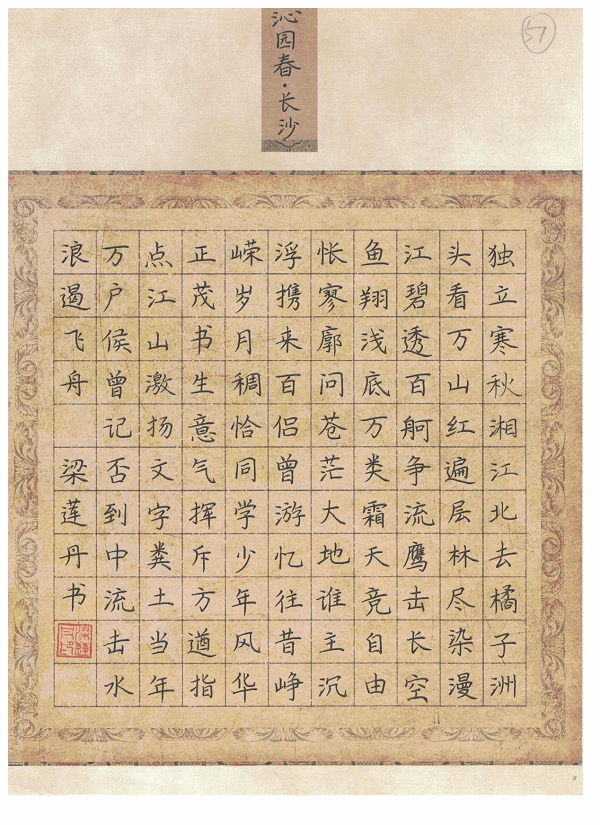 沁园春·长沙
57
独立寒秋湘江北去橘子洲
头看万山红遍层林尽染漫
江碧透百舸争流鹰击长空
鱼翔浅底万类霜天竞自由
怅寥廓问苍茫大地谁主沉
浮携来百侣曾游忆往昔峥
嵘岁月稠恰同学少年风华
正茂书生意气挥斥方遒指
点江山激扬文字粪土当年
万户侯曾记否到中流击水
浪遏飞舟 梁莲丹书